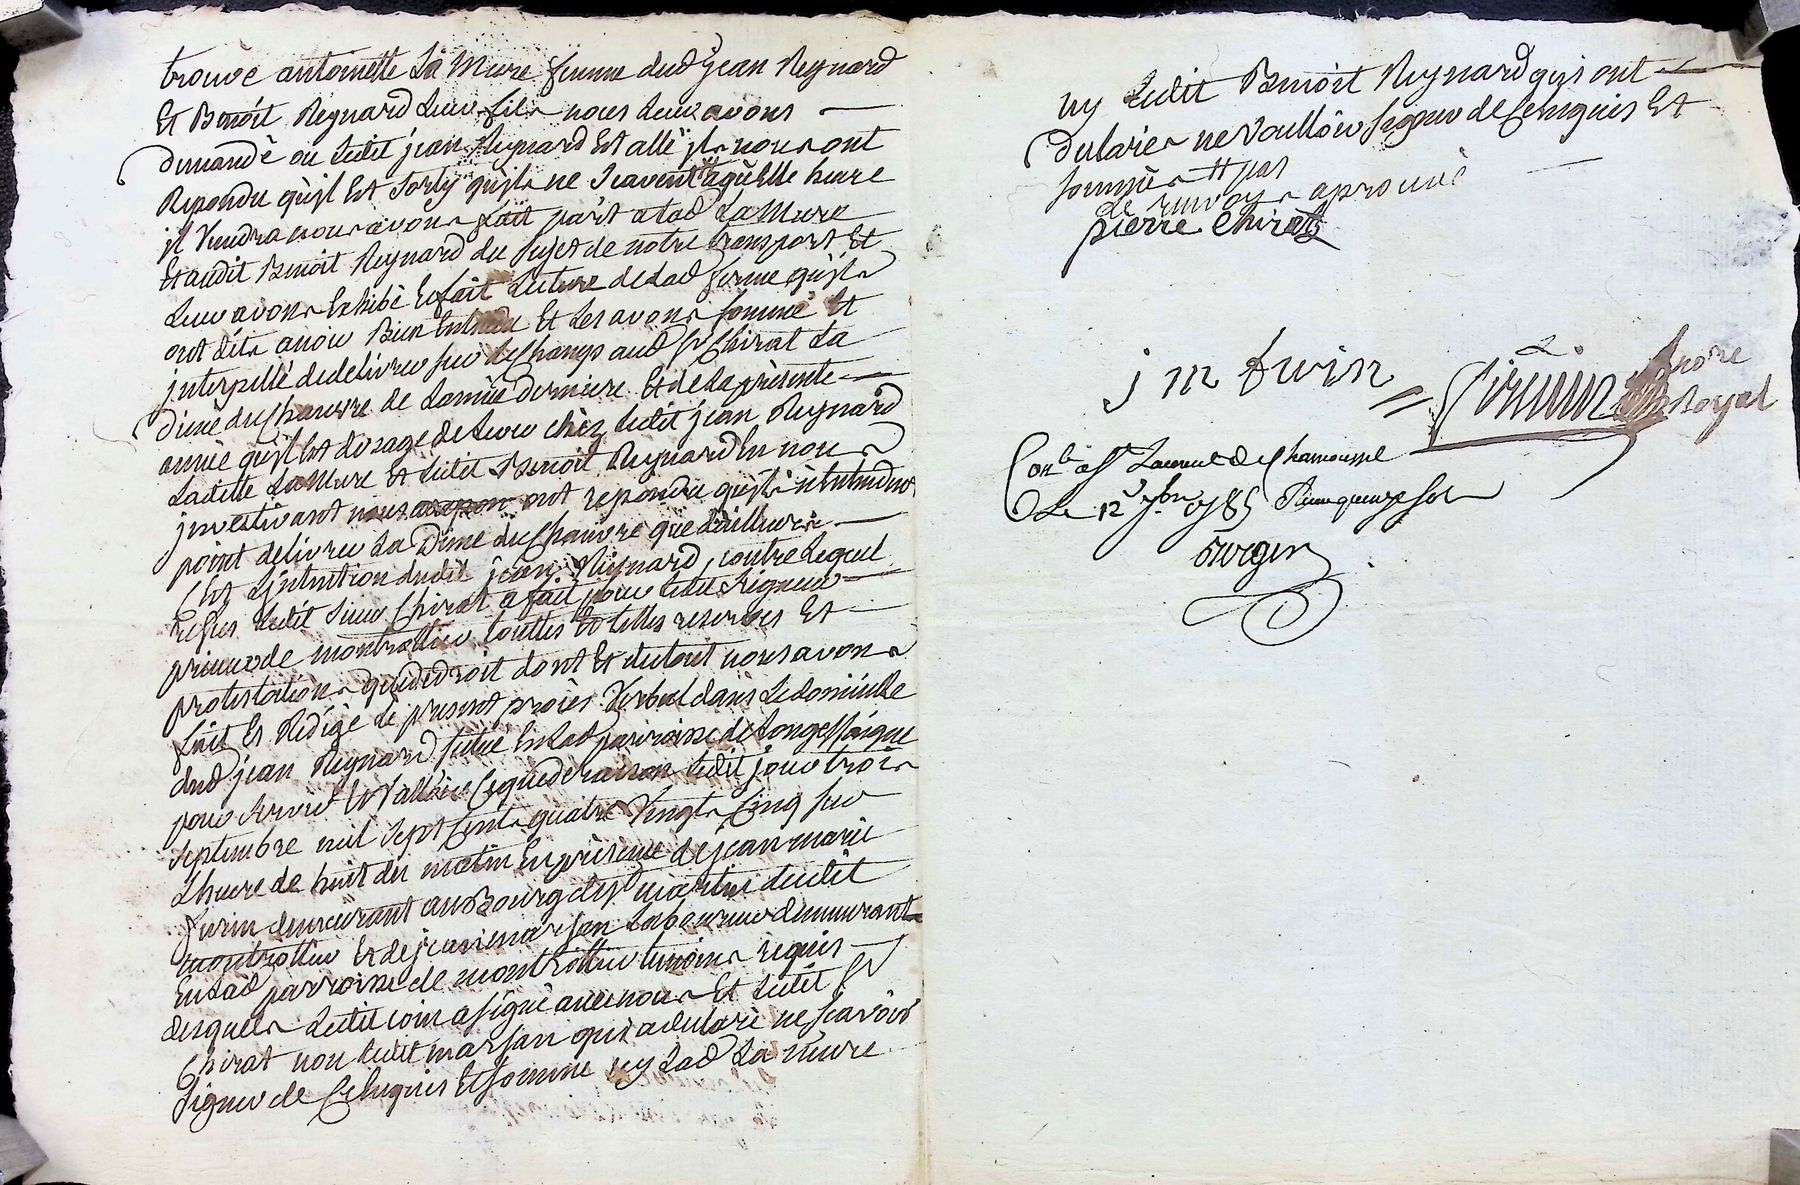 trouvé antoinette La Mure femme dud jean Reynard
Et Benoit Reynard Leur fils nous leur avons
demandé ou Ledit jean Reynard Est allé jls nous ont
Repondu qu'jl Est Sorty qu'jls ne Scavent aquelle heure
jl Viendra nous avons fait part a lad La Mure
Et audit Benoit Reynard du Sujet de notre transport Et
Leur avons Exhibé Et fait Lecture de lad ferme qu'jls
ont dits avoir Bien Entendu Et Les avons sommé Et
jnterpellé de delivrer sur Le Champs aud Sr Chirat La
Dime du Chanvre de Lannée derniere Et de La présente
année qu'jl Est dusage de Lever chéz Ledit jean Reynard
Ladite La Mure Et Ledit Benoit Reynard En nous
jnvestivant ont repondu qu'jls n'Entendent
point delivrer La Dime du Chanvre que d'ailleurs
C'Est L'jntention dudit jean Reynard, contre Lequel
refus Ledit Sieur Chirat a fait pour Ledit Seigneur
prieur de montrottier touttes Et telles reserves Et
protestations que de droit dont Et du tout nous avons
fait Et Rédigé le present procès Verbal dans Le domicille
dud jean Reynard situé En Lad parroisse de Longessaigne
pour Servir Et Valloir Ce que de raison Ledit jour trois
Septembre mil Sept Cents quatre Vingts Cinq sur
L'heure de huit du matin En présence de jean marie
furin demeurant au Bourg de st martin dudit
montrottier Et de jean marsan Laboureur demeurant
En Lad parroisse de montrottier temoins requis
desquels Ledit furin a signé avec nous Et Ledit Sr
Chirat non Ledit marsan qui a declaré ne Scavoir
Signer de Ce Enquis Et Sommé ny Lad La Mure
ny Ledit Benoit Reynard qui ont
declarés ne Voulloir signer de Ce Enquis Et
sommés # par
de renvoy aprouvé
pierre Chirat
j m furin
nore
Royal
Conlé a St Laurent de Chamousset
Le 12 7bre 1785 Reçu quinze sols